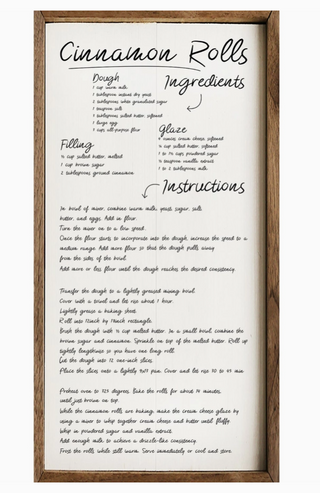 Cinnamon Rolls
Dough
1 cup warm milk
1 tablespoon instant dry yeast
2 tablespoons white granulated sugar
1 teaspoon salt
3 tablespoons salted butter, softened
1 large egg
3 cups all-purpose flour
Ingredients
Glaze
4 ounces cream cheese, softened
¼ cup salted butter, softened
1 to 1½ cups powdered sugar
½ teaspoon vanilla extract
1 to 2 tablespoons milk
Filling
½ cup salted butter, melted
1 cup brown sugar
2 tablespoons ground cinnamon
Instructions
In bowl of mixer, combine warm milk, yeast, sugar, salt,
butter, and eggs. Add in flour.
Turn the mixer on to a low speed.
Once the flour starts to incorporate into the dough, increase the speed to a
medium range. Add more flour so that the dough pulls away
from the sides of the bowl.
Add more or less flour until the dough reaches the desired consistency.
Transfer the dough to a lightly greased mixing bowl.
Cover with a towel and let rise about 1 hour.
Lightly grease a baking sheet.
Roll into 12inch by 14inch rectangle.
Brush the dough with ½ cup melted butter. In a small bowl, combine the
brown sugar and cinnamon. Sprinkle on top of the melted butter. Roll up
tightly lengthwise so you have one long roll.
Cut the dough into 12 one-inch slices.
Place the slices onto a lightly 9x13 pan. Cover and let rise 30 to 45 min.
Preheat oven to 325 degrees. Bake the rolls for about 14 minutes,
until just brown on top.
While the cinnamon rolls are baking, make the cream cheese glaze by
using a mixer to whip together cream cheese and butter until fluffy.
Whip in powdered sugar and vanilla extract.
Add enough milk to achieve a drizzle-like consistency.
Frost the rolls while still warm. Serve immediately or cool and store.